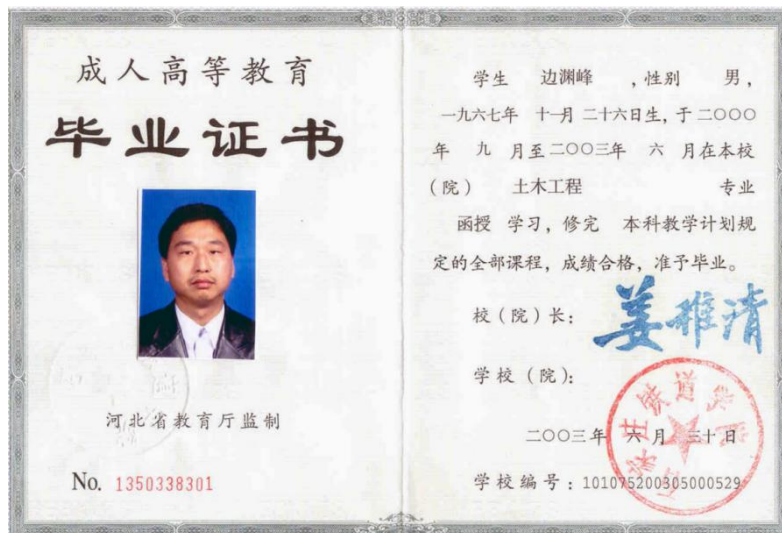 成人高等教育
毕业证书
河北省教育厅监制
No. 1350338301
学生 边渊峰 ，性别 男，
一九六七年 十一月 二十六日生，于二〇〇〇
年 九 月至二〇〇三年 六 月在本校
（院） 土木工程 专业
函授 学习，修完 本科教学计划规
定的全部课程，成绩合格，准予毕业。
校（院）长：
学校（院）：
石家庄铁道学院
二〇〇三年 六 月 三十 日
学校编号：101075200305000529